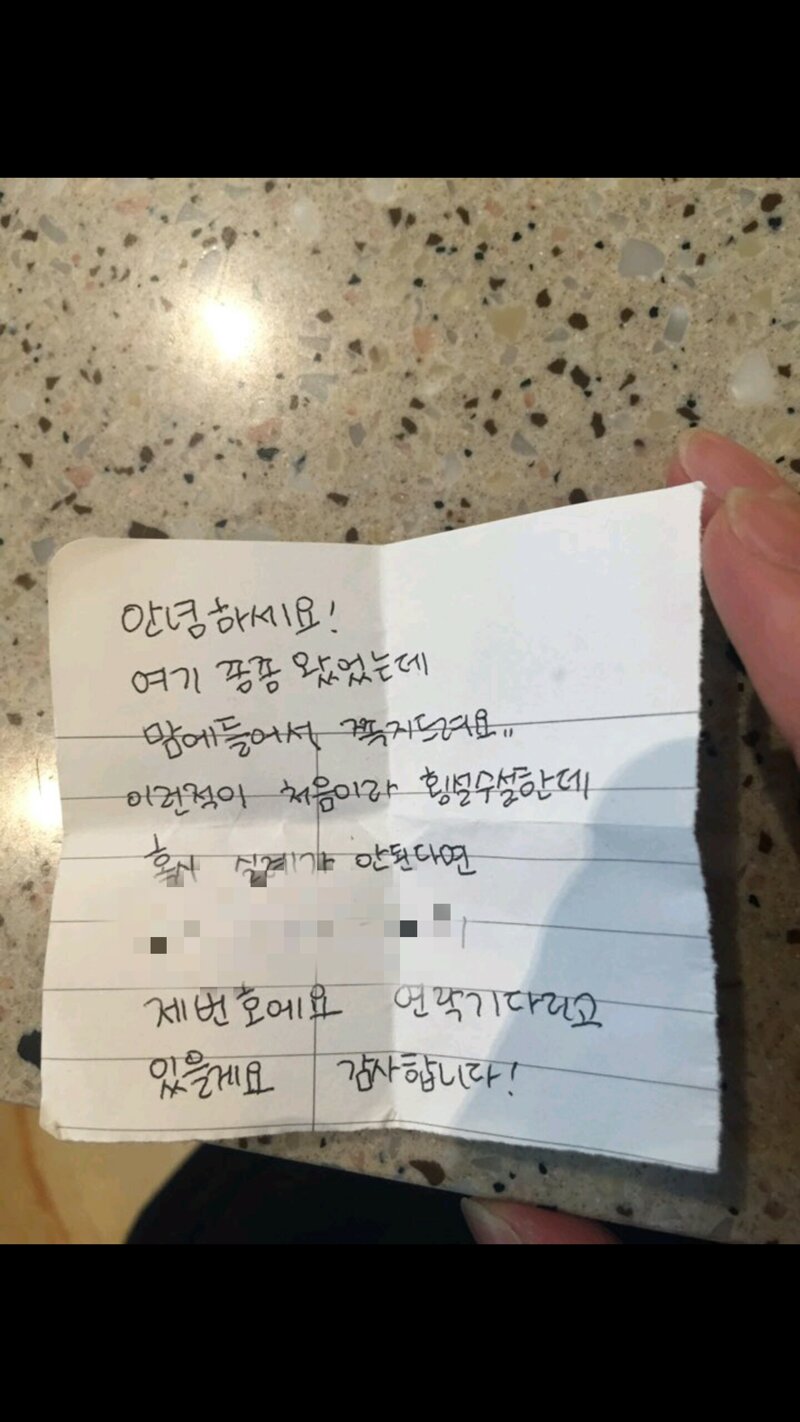 안녕하세요!
여기 종종 왔었는데
맘에들어서 쪽지드려요..
이런적이 처음이라 횡설수설한데
혹시 실례가 안된다면
제번호에요 연락기다리고
있을게요 감사합니다!